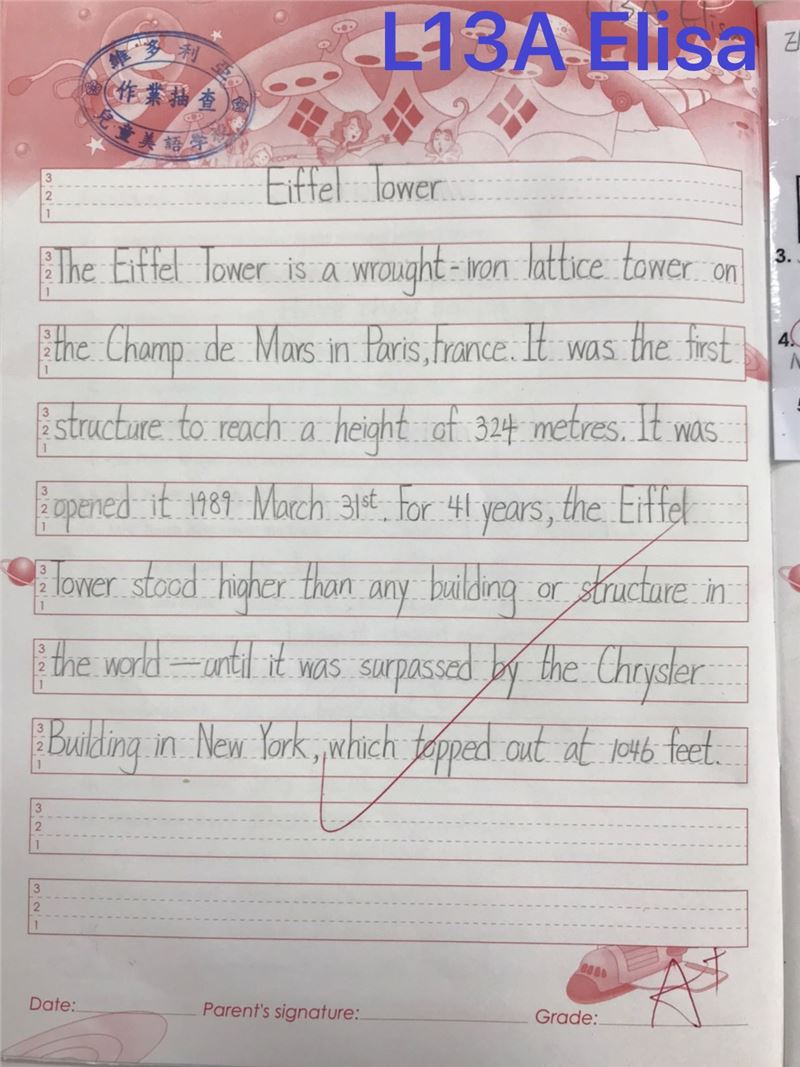 L13A Elisa
維多利亞
作業抽查
兒童美語學校
Eiffel Tower
The Eiffel Tower is a wrought-iron lattice tower on
the Champ de Mars in Paris, France. It was the first
structure to reach a height of 324 metres. It was
opened it 1989 March 31st. For 41 years, the Eiffel
Tower stood higher than any building or structure in
the world—until it was surpassed by the Chrysler
Building in New York, which topped out at 1046 feet.
3
2
1
3
2
1
3
2
1
3
2
1
3
2
1
3
2
1
3
2
1
3
2
1
3
2
1
3
2
1
3.
4.
Date: Parent's signature: Grade: A+